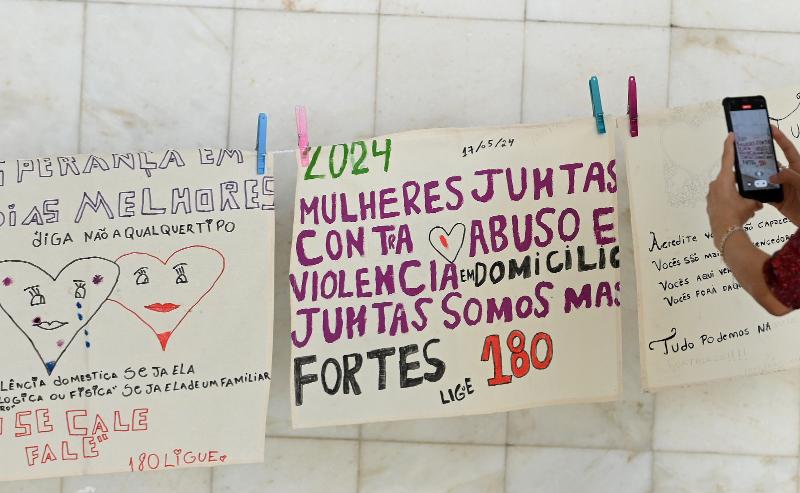 SPERANÇA EM
DIAS MELHORES
DIGA NÃO A QUALQUER TIPO
LÊNCIA DOMESTICA SEJA ELA
LOGICA OU FÍSICA" SEJA ELA DE UM FAMILIAR
SE CALE
FALE"
180 LIGUE
2024
17/05/24
MULHERES JUNTAS
CONTRA ABUSO E
VIOLENCIA EM DOMICILIO
JUNTAS SOMOS MAS
FORTES 180
LIGE
Acredite
Vocês são mais
Vocês aqui
Vocês fora
Tudo Podemos NA